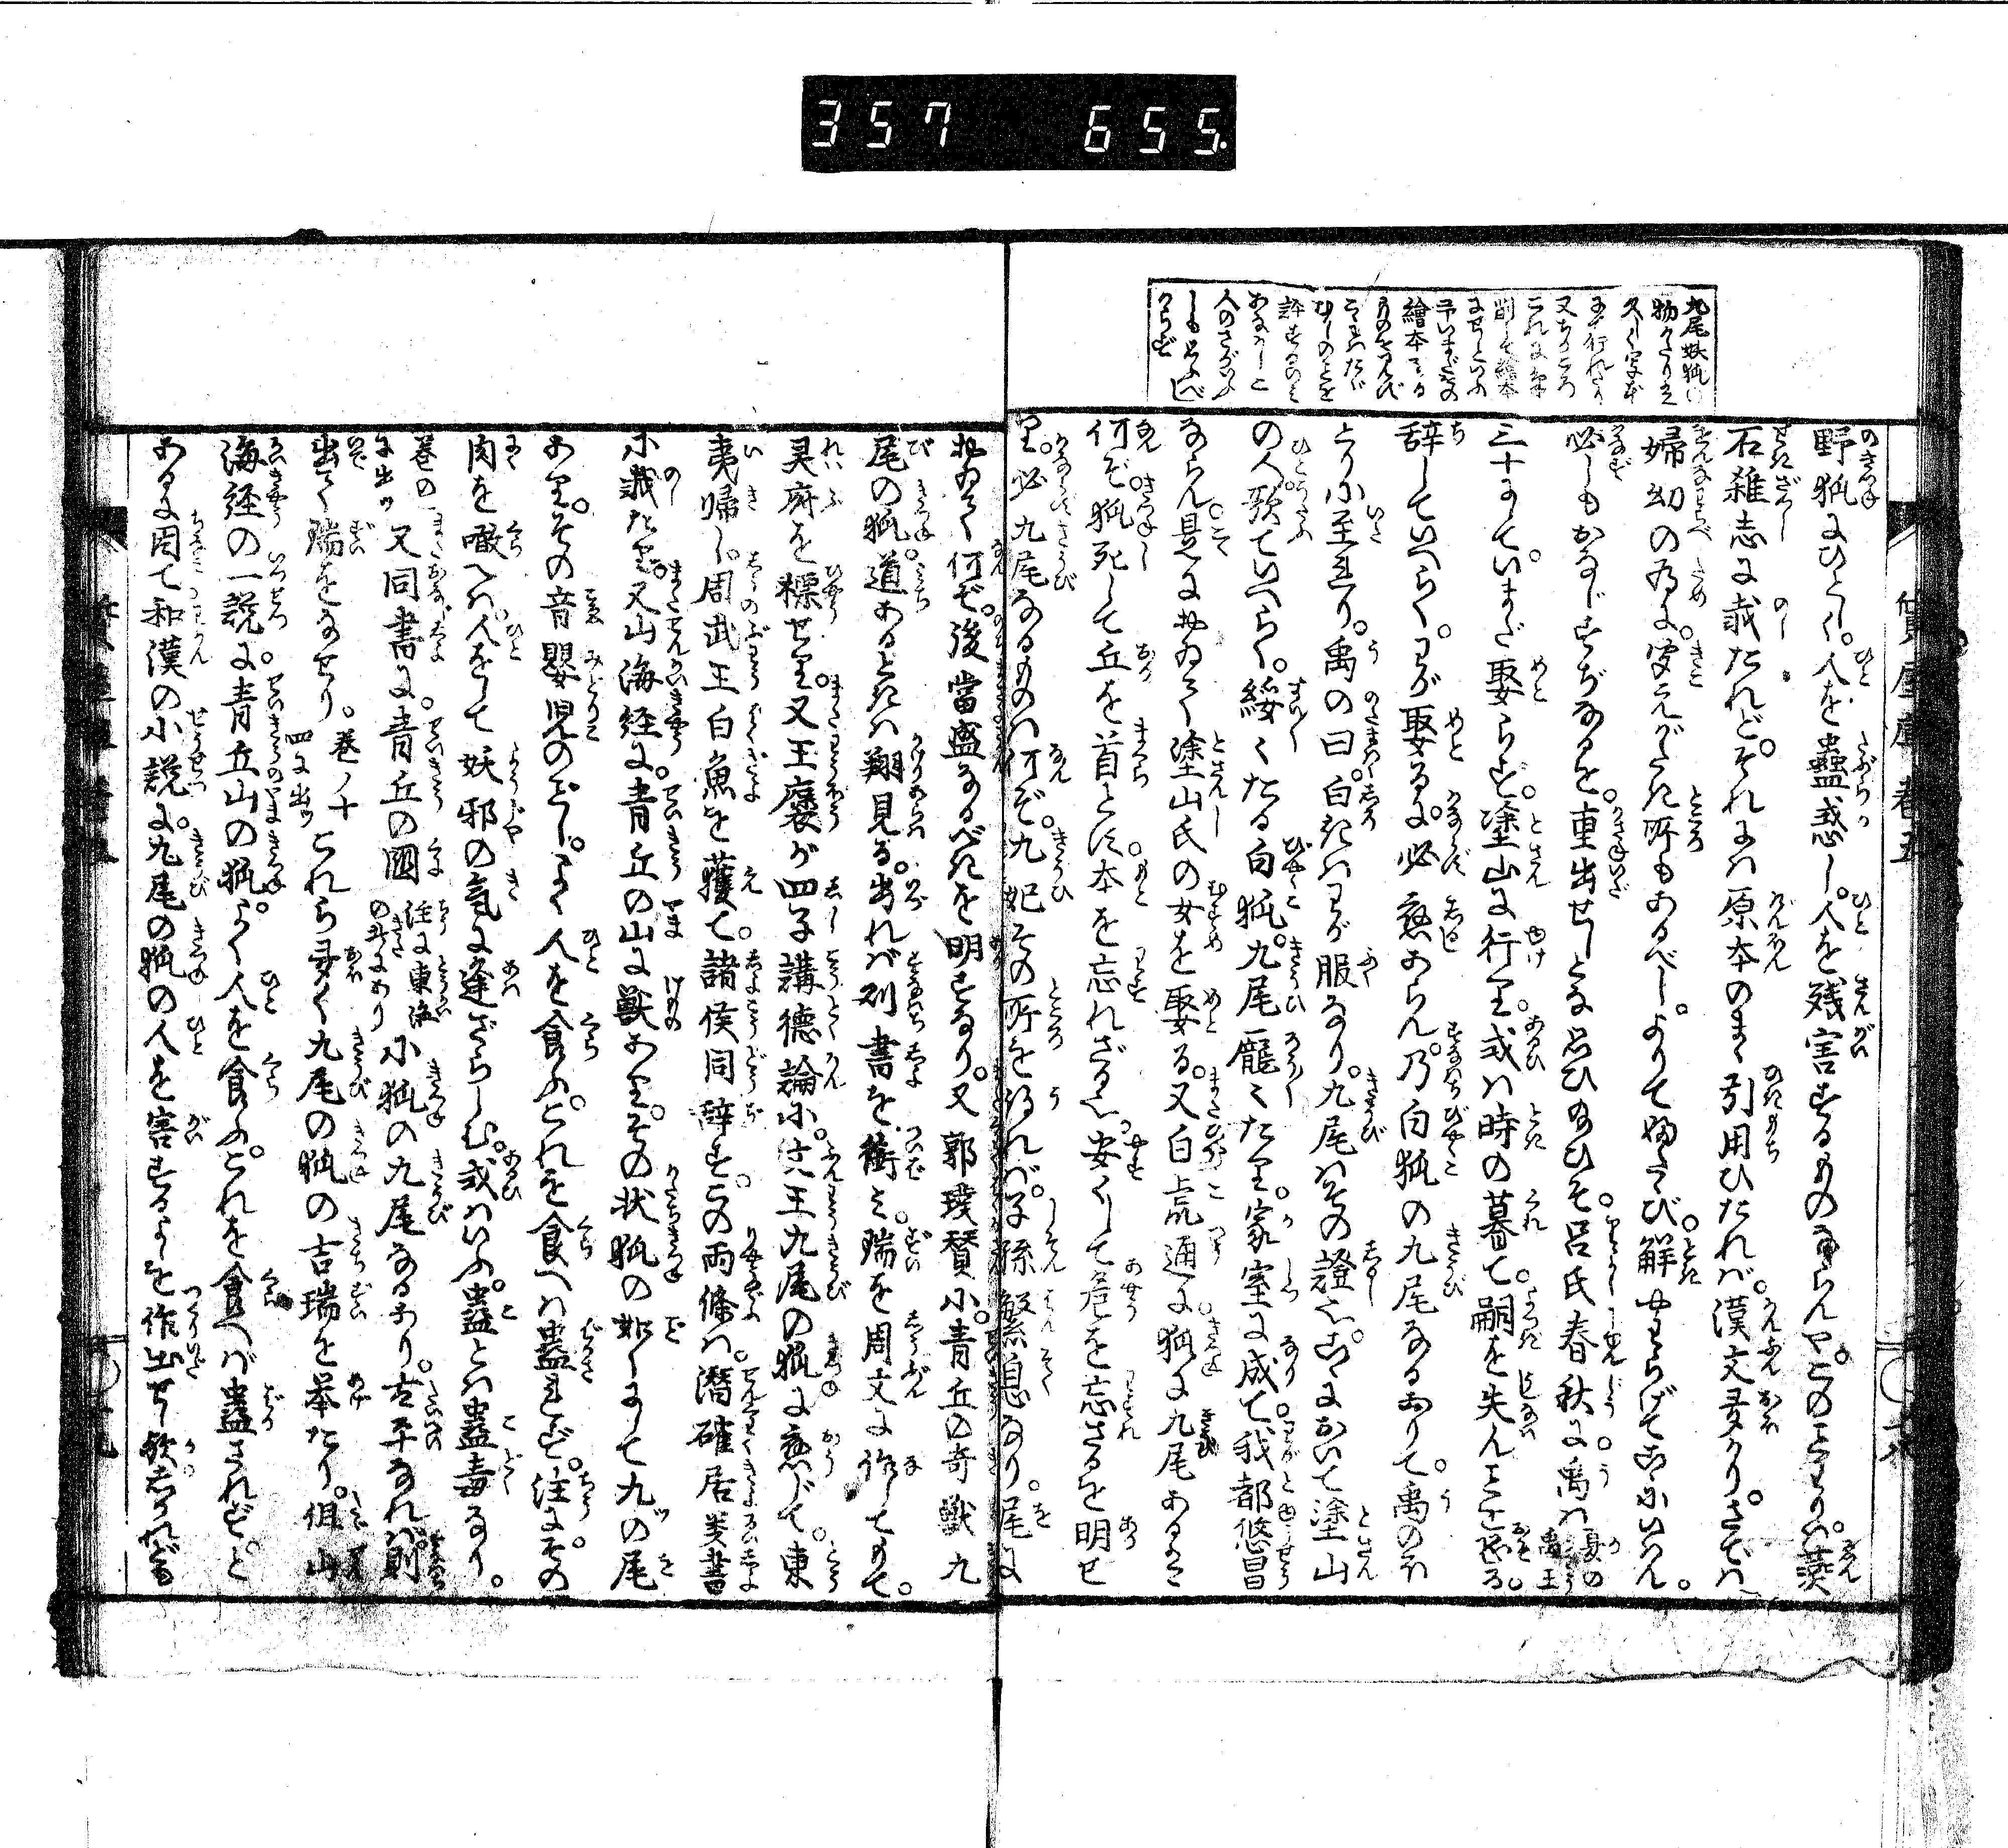 357 655.
九尾妖狐の
物がたりは
久しく写本
にて行れたり
又ちかころ
これは
削して絵本
にせしといふ
予いまだその
繪本を
許するに
人のさがいふ
しもとふべ
からず
質屋庫巻五
野狐にひとし。人を蠱惑し。人を残害するものならんや。このことわりは。漢
石雑志に載たれど。それには原本のまゝ引用ひたれば。漢文多かり。さでは
婦幼の為に。定えがたき所もあるべし。よりて ふたゝび。解やわらげてこゝにいはん。
必しもおなじすぢなるを。重出せしとな思ひ給ひそ。呂氏春秋に禹は 夏の禹王
三十にて。いまだ娶らず。塗山に行り。或は時の暮て。嗣を失んことを恐る。
辞していへらく。わが娶るや。必應あらん。乃白狐の九尾なるありて。禹のほ
とりに至れり。禹の曰。白きはわが服なり。九尾はその證也。こゝにおいて塗山
の人。歌ていへらく。綏くたる白狐。九尾厖〻たり。家室に成て。我都悠昌
ならん。是におゐて塗山氏の女を娶る。又白虎通に。狐に九尾あるは
何ぞ。狐死して丘を首とす。本を忘れざる也。安くして危を忘ざるを明せ
り。必九尾なるものは何ぞ。九妃その所を得れば。子孫繁息なり。尾に
おゐて何ぞ。後當盛なるべきを明すなり。又郭璞賛に。青丘の奇獣九
尾の狐。道あるときは翔見る。出れば則書を銜み。瑞を周文に作してもて。
㚑府を標せり。又王褒が四子講徳論に。昔文王九尾の狐に應じて。東
夷帰し。周武王白魚を獲て。諸侯同辞す。この両條は。潜確居類書
に載たり。又山海経に。青丘の山に獣あり。その状狐の如くにて九ツの尾
あり。その音嬰児のごとし。よく人を食ふ。これを食へは蠱せず。注に。その
肉を噉へは。人をして妖邪の気に逢ざらしむ。或はいふ。蠱とは蠱毒なり。
巻の
に出ツ 又同書に。青丘の國 注に東海
の外にあり 小狐の九尾なるあり。太平なれば則
出て瑞をなせり。巻ノ十
四に出ツ これら多く九尾の狐の吉瑞を挙たり。但山
海経の一説に。青丘山の狐。よく人を食ふ。これを食へば蠱されずと
あるに因て和漢の小説に。九尾の狐の人を害するよしを作出せし歟。しかれども